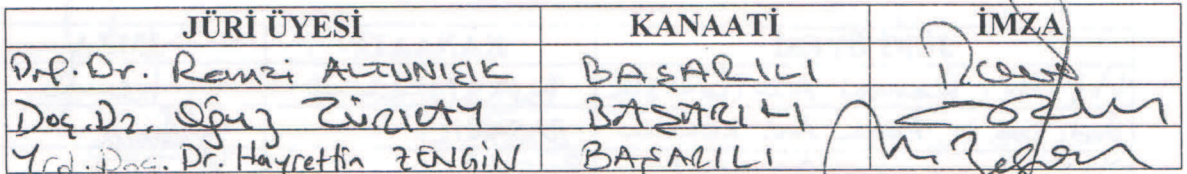 JÜRİ ÜYESİ KANAATİ İMZA
Prof. Dr. Remzi ALTUNIŞIK BAŞARILI
Doç. Dr. Oğuz TÜRKAY BAŞARILI
Yrd. Doç. Dr. Hayrettin ZENGİN BAŞARILI